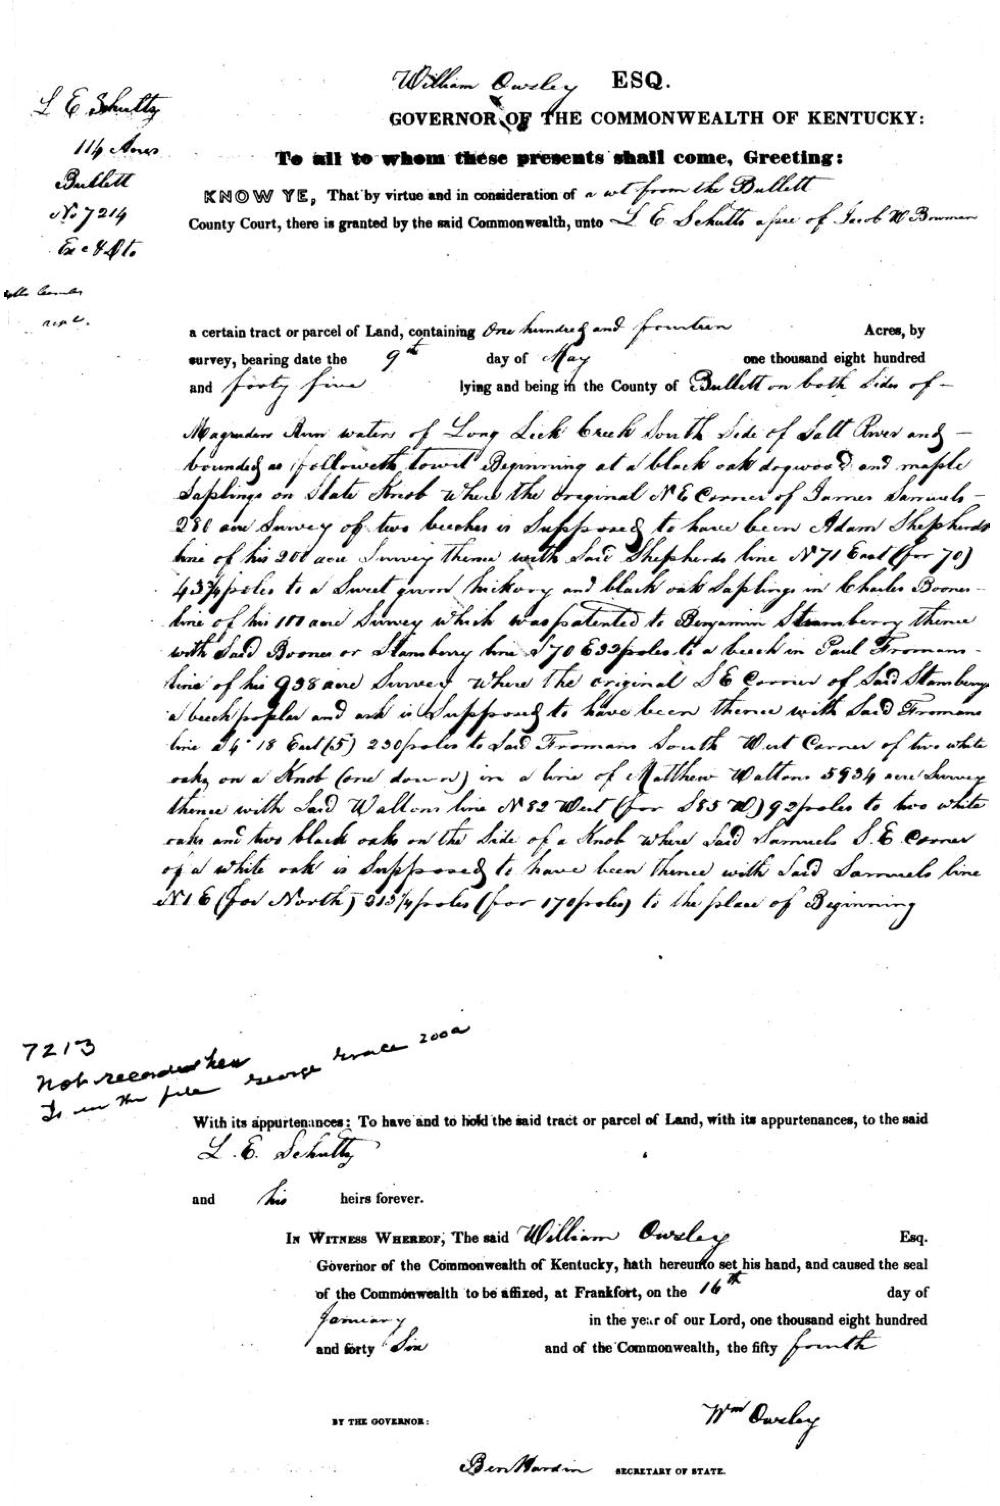 William Owsley ESQ.
GOVERNOR OF THE COMMONWEALTH OF KENTUCKY:
L E Schultz
114 Acres
Bullett
No 7214
Exc & D to
To all to whom these presents shall come, Greeting:
KNOW YE, That by virtue and in consideration of a wt from the Bullett
County Court, there is granted by the said Commonwealth, unto L E Schults assee of Jacob W Bowman
a certain tract or parcel of Land, containing One hundred and fourteen Acres, by
survey, bearing date the 9th day of May one thousand eight hundred
and forty five lying and being in the County of Bullett on both Sides of
Magruders Run waters of Long Lick Creek South Side of Salt River and
bounded as followeth towit Beginning at a black oak dogwood and maple
Saplings on State Knob where the original N E Corner of James Samuels
280 acre Survey of two beeches is Supposed to have been Adam Shepherds
line of his 200 acre Survey thence with Said Shepherds line N 71 East (for 70)
43¾ poles to a Sweet gum hickory and black oak Saplings in Charles Boones
line of his 100 acre Survey which was patented to Benjamin Stansberry thence
with Said Boones or Stansberry line S 70 E 32 poles to a beech in Paul Fromans
line of his 938 acre Survey where the original S E Corner of Said Stansberrys
a beech poplar and ash is Supposed to have been thence with Said Fromans
line 18 East (5) 230 poles to Said Fromans South West Corner of two white
oaks on a Knob (one down) in a line of Matthew Waltons 5934 acre Survey
thence with Said Waltons line N 82 West (for S 85 W) 92 poles to two white
oaks and two black oaks on the Side of a Knob where Said Samuels S. E. Corner
of a white oak is Supposed to have been thence with Said Samuels line
N 1 E (for North) 213¼ poles (for 170 poles) to the place of Beginning
7213
Not recorded here
Is in the file George Grace 200a
With its appurtenances: To have and to hold the said tract or parcel of Land, with its appurtenances, to the said
L. E. Schultz
and his heirs forever.
IN WITNESS WHEREOF, The said William Owsley Esq.
Governor of the Commonwealth of Kentucky, hath hereunto set his hand, and caused the seal
of the Commonwealth to be affixed, at Frankfort, on the 16th day of
January in the year of our Lord, one thousand eight hundred
and forty Six and of the Commonwealth, the fifty fourth
Wm Owsley
BY THE GOVERNOR:
Ben Hardin SECRETARY OF STATE.